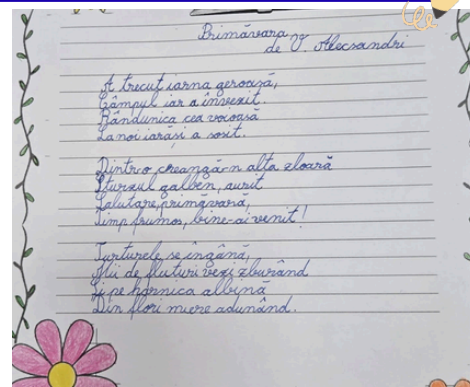 Primăvara
de V. Alecsandri
A trecut iarna geroasă,
Câmpul iar a înverzit.
Rândunica cea voioasă
La noi iarăși a sosit.
Dintr-o creangă-n alta zboară
Sturzul galben, aurit
Salutare, primăvară,
Timp frumos, bine-ai venit!
Turturele se îngână,
Mii de fluturi vezi zburând
Și pe harnica albină
Din flori miere adunând.